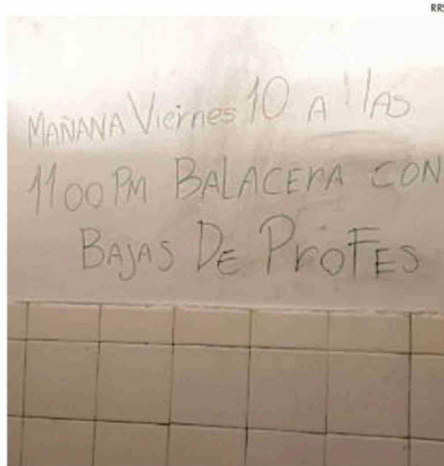 RRS
MAÑANA Viernes 10 A llAS
1100 PM BALACERA CON
BAJAS DE PROFES